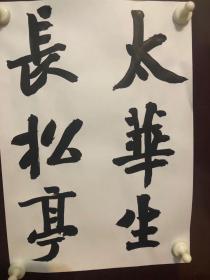 太華生
長松亭